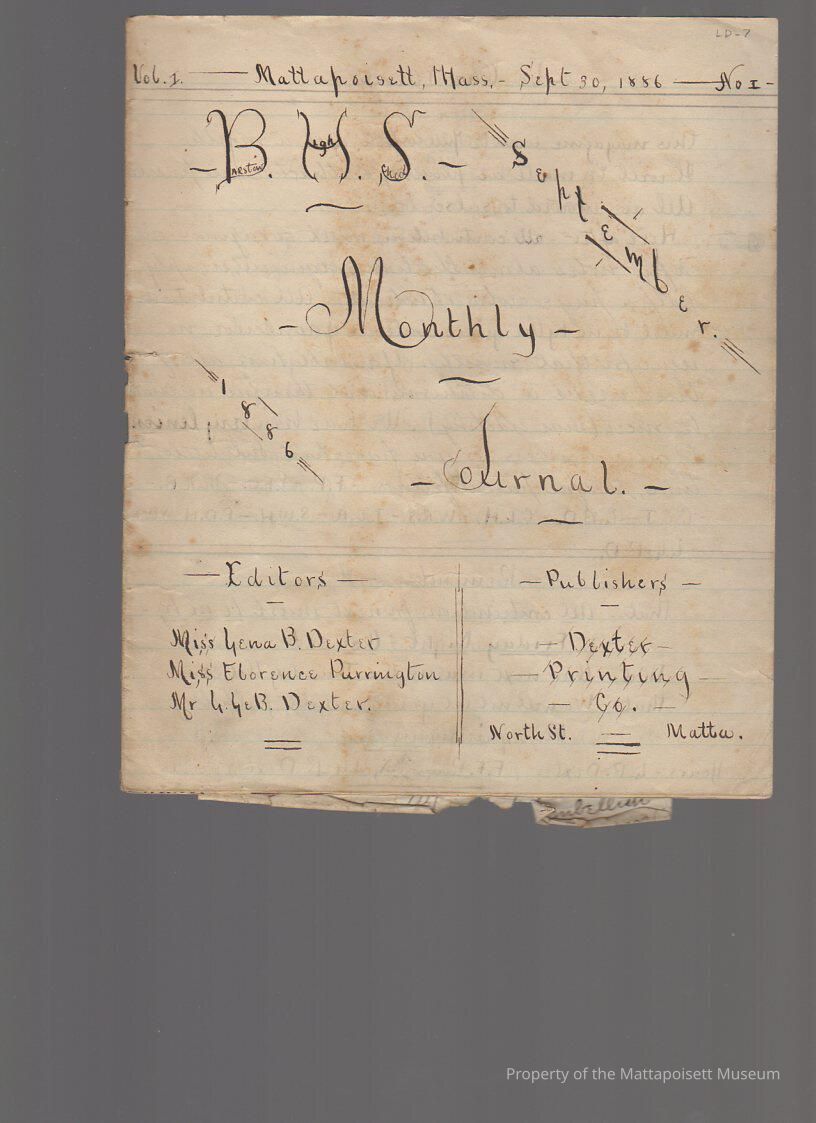 LD-7
Vol. 1. — Mattapoisett, Mass. - Sept 30, 1886 — No I -
- B. H. S. -
arston igh chool
September.
- Monthly -
1886
- Journal. -
— Editors —
Miss Lena B. Dexter
Miss Florence Purrington
Mr G. Dexter.
— Publishers —
— Dexter —
— Printing —
— Co. —
North St. Matta.
Property of the Mattapoisett Museum